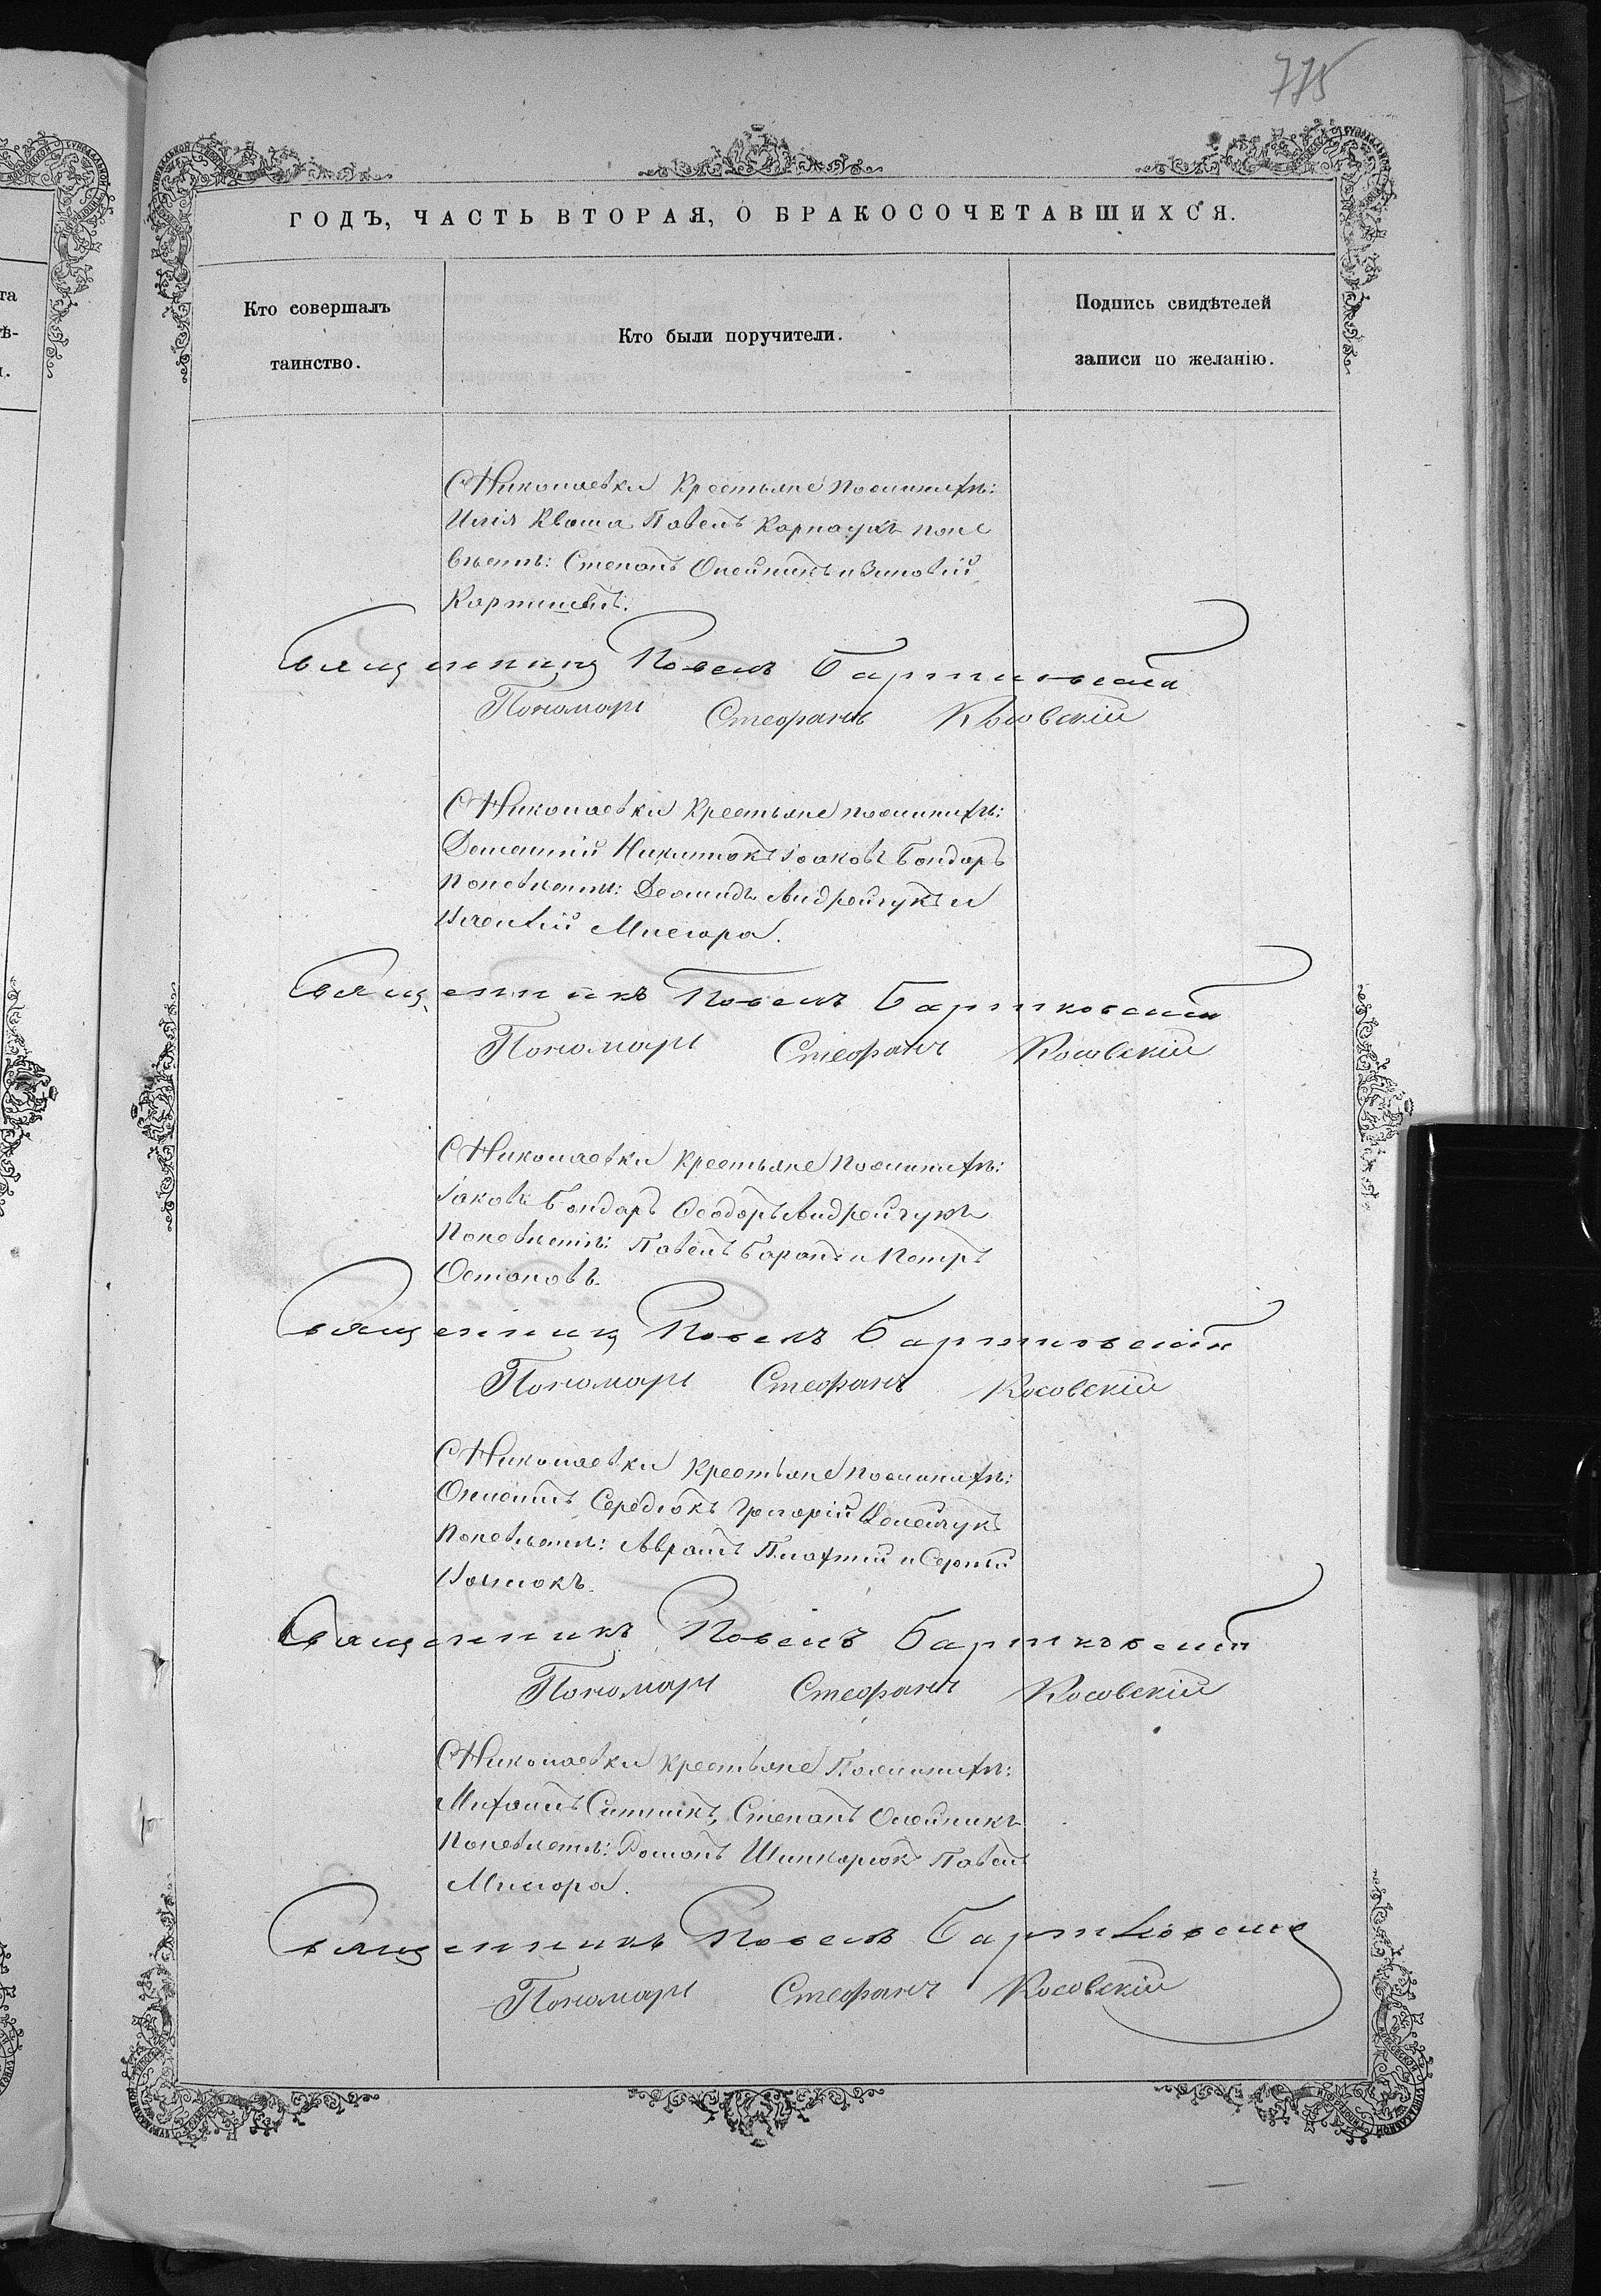 775
ГОДЪ, ЧАСТЬ ВТОРАЯ, О БРАКОСОЧЕТАВШИХСЯ.
Кто совершалъ
таинство.
Кто были поручители.
Подпись свидѣтелей
записи по желанію.
С Николаевки крестьяне по женихѣ:
Илія Кваша Павелъ Карпаукъ по не
вѣстѣ: Степанъ Олейникъ и Зиновій
Священникъ Павелъ Бартковскій
Пономарь Стефанъ Косовскій
С Николаевки крестьяне по женихѣ:
Никитюкъ Іаковъ Бондаръ
по невѣстѣ: Леонидъ Андрейчукъ и
Мисюра.
Священникъ Павелъ Бартковскій
Пономарь Стефанъ Косовскій
С Николаевки крестьяне по женихѣ:
Іаковъ Бондаръ Ѳеодоръ Андрейчукъ
по невѣстѣ: Павелъ Баранъ и Петръ
Остаповъ.
Священникъ Павелъ Бартковскій
Пономарь Стефанъ Косовскій
С Николаевки крестьяне по женихѣ:
Середюкъ Григорій
по невѣстѣ: Аврамъ и Сергій
Священникъ Павелъ Бартковскій
Пономарь Стефанъ Косовскій
С Николаевки крестьяне по женихѣ:
Михаилъ Ситникъ, Степанъ Олейникъ
по невѣстѣ: Романъ Шинкарюкъ Павелъ
Мисюра.
Священникъ Павелъ Бартковскій
Пономарь Стефанъ Косовскій